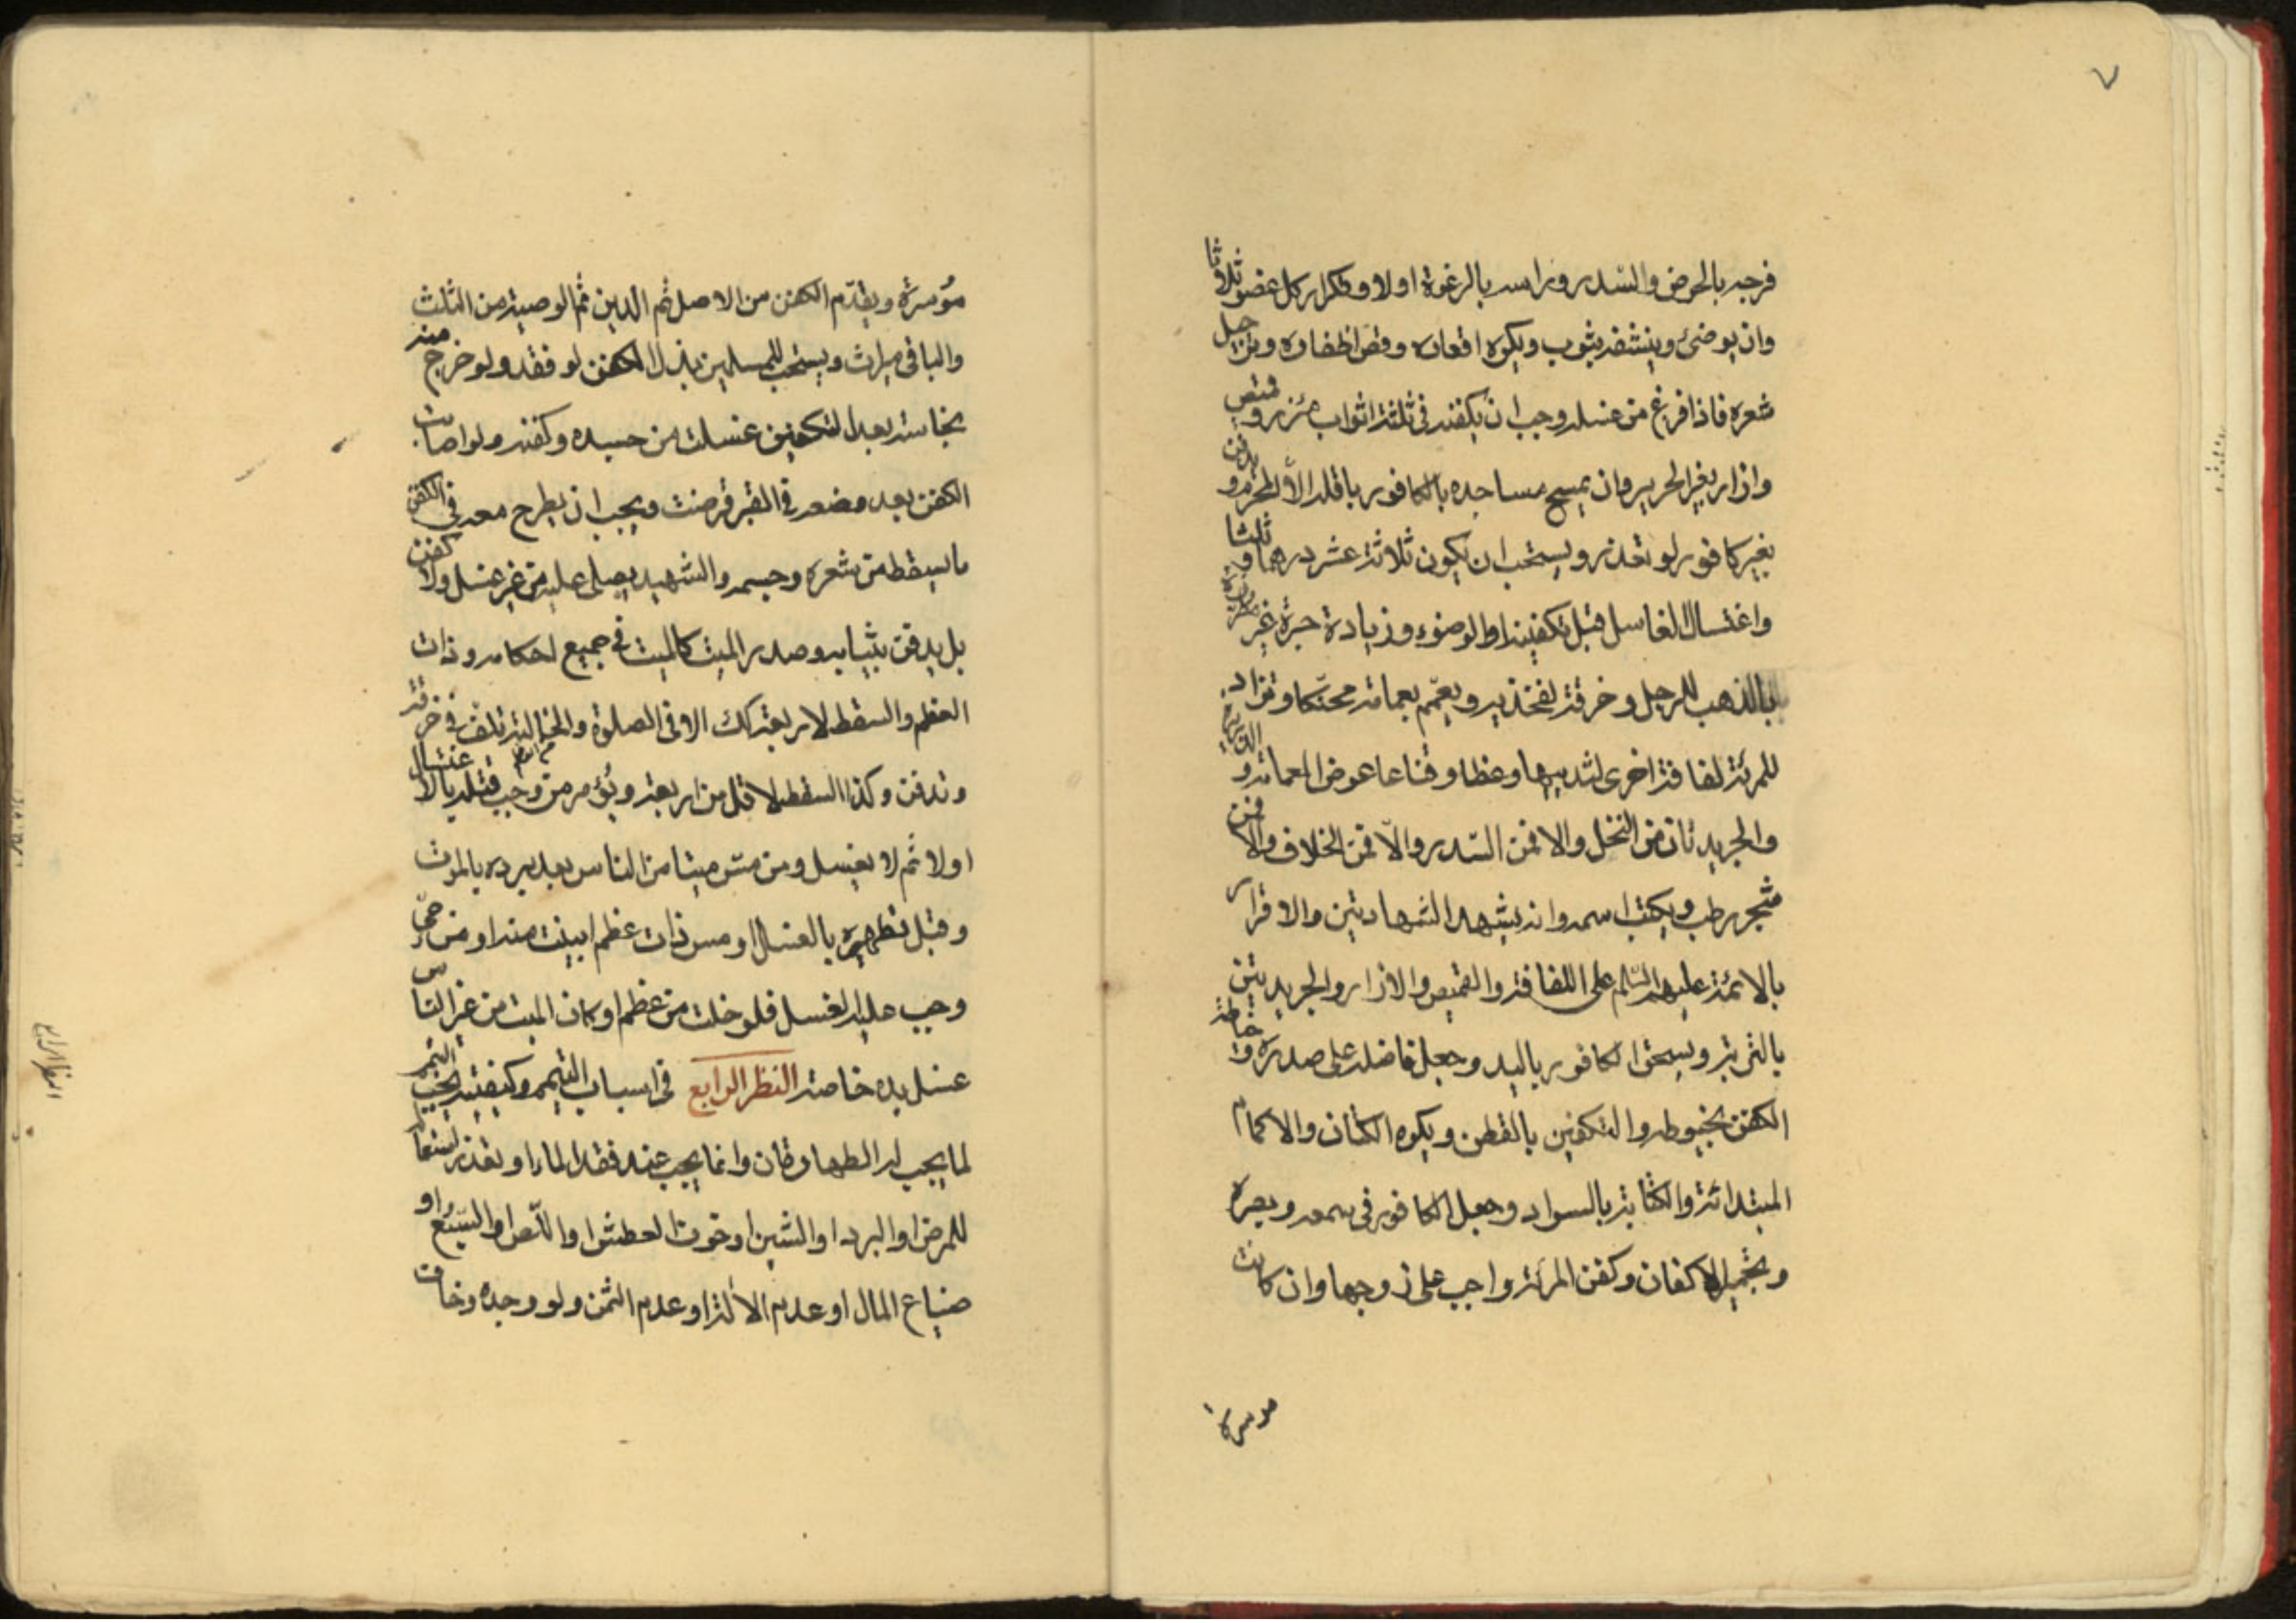 ٧
فرجه بالحرض والسّدر وراسه بالرغوة اولا وتكرار كل عضو ثلاثا
وان يوضئ وينشفه بثوب ويكره اقعاده وقص اظفاره وترجيل
شعره فاذا فرغ من غسله وجب ان يكفنه في ثلثة اثواب مئزر وقميص
وازار بغير الحرير وان يمسح مساجده بالكافور باقله الّا المحرم ويدفن
بغير كافور لو تعذر ويستحب ان يكون ثلاثة عشر درهما وثلثا
واغتسال الغاسل قبل تكفينه او الوضوء وزيادة حبرة غير مطرزة
بالذهب للرجل وخرقة لفخذيه ويعمّم بعمامة محنّكا وتزاد
للمرئة لفافة اخرى لثدييها وعظا وقناعا عوض العمامة والذريرة
والجريدتان من النخل والا فمن السّدر والّا فمن الخلاف والا فمن
شجر رطب ويكتب اسمه وانه يشهد الشهادتين والاقرار
بالائمة عليهم السّلم على اللفافة والقميص والازار والجريدتين
بالتربة ويسحق الكافور باليد وجعل فاضله على صدره وخياطة
الكفن بخيوطه والتكفين بالقطن ويكره الكتان والاكمام
المبتدائة والكتابة بالسواد وجعل الكافور في سمعه وبصره
وتجمير الاكفان وكفن المرئة واجب على زوجها وان كانت
موسرة
مؤسرة ويقدّم الكفن من الاصل ثم الدين ثم الوصية من الثلث
والباقي ميراث ويستحب للمسلمين بذل الكفن لو فقد ولو خرج منه
نجاسة بعد التكفين غسلت من جسده وكفنه ولو اصابت
الكفن بعد وضعه في القبر قرضت ويجب ان يطرح معه في الكفن
ما يسقط من شعره وجسمه والشهيد يصلى عليه من غير غسل ولا كفن
بل يدفن بثيابه وصدر الميت كالميت في جميع احكامه وذات
العظم والسقط لاربعة كك الا في الصلوة والخالية تلف في خرقة
وتدفن وكذا السقط لاقل من اربعة ويؤمر من وجب قتله بالاغتسال
اولا ثم لا يغسل ومن مسّ ميتا من الناس بعد برده بالموت
وقبل تطهيره بالغسل او مس ذات عظم ابينت منه او من حيّ
وجب عليه الغسل فلو خلت من عظم او كان الميت من غير الناس
غسل يده خاصة النظر الرابع في اسباب التيمم وكيفيته يجب التيمم
لما يجب له الطهارتان وانما يجب عند فقد الماء او تعذر استعماله
للمرض او البرد او الشين او خوف العطش او اللّص او السّبع او
ضياع المال او عدم الالة او عدم الثمن ولو وجده وخاف